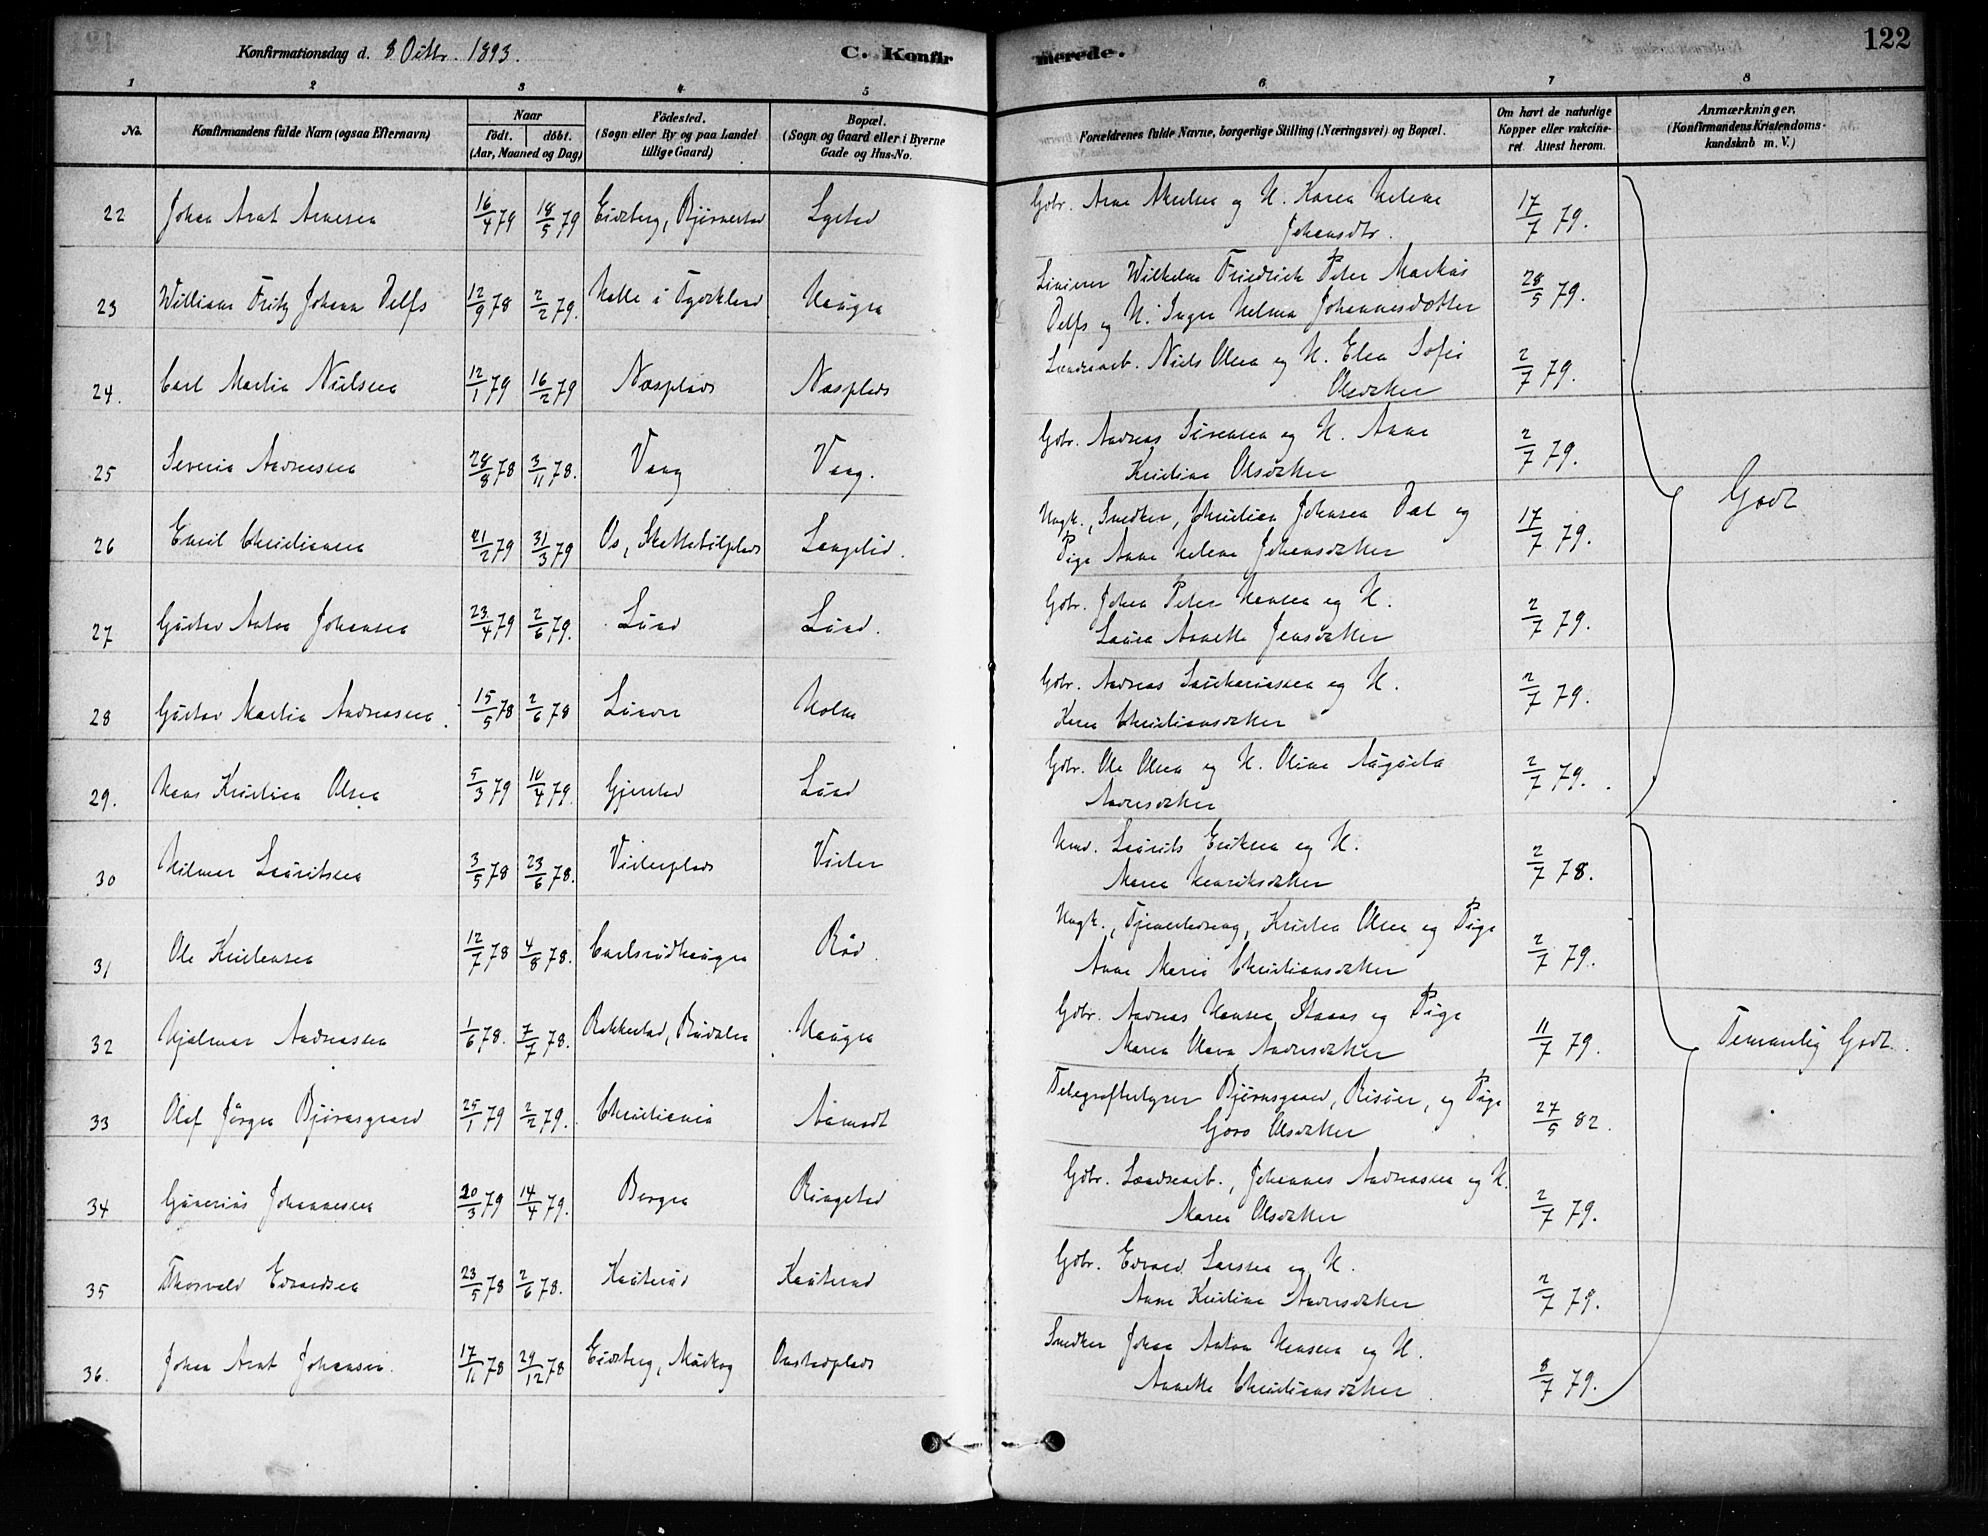 Konfirmationsdag d. 8 Octbr. 1893.
C. Konfirmerede.
122
1 2 3 4 5 6 7 8
No.
Konfirmandens fulde Navn (ogsaa Efternavn)
Naar
födt. döbt.
(Aar, Maaned og Dag)
Födested.
(Sogn eller By og paa Landet
tillige Gaard)
Bopæl.
(Sogn og Gaard eller i Byerne
Gade og Hus-No.
Forældrenes fulde Navne, borgerlige Stilling (Næringsvei) og Bopæl.
Om havt de naturlige
Kopper eller vakcine-
ret. Attest herom.
Anmærkninger.
(Konfirmandens Kristendoms-
kundskab m. V.)
22 Johan Arnt Arnesen 16/4 79 18/5 79 Eidsberg, Bjørnestad Lystad Gbr. Arne Nielsen og H. Karen Helene 17/7 79.
Johansdtr.
23 William Fritz Johann Delfs 12/9 78 2/2 79. Halle i Tydskland Haugen Wilhelm Friedrich Peter Markus 28/5 79.
Delfs og H. Inger Helma Johannesdatter
24. Carl Martin Nielsen 12/1 79 16/2 79 Næsplads Næsplads Niels Olsen og H. Elen Sofie 2/7 79.
Olsdatter
25 Severin Andresen 28/8 78 3/11 78. Vaag Vaag. Gbr. Andreas Sørensen og H. Anne 2/7 79.
Kristine Olsdatter
Godt
26 Emil Christiansen 21/2 79 31/3 79 Os, Skattebølplads Langelid. Ungk., Snedker, Christian Johnsen Dal og 17/7 79.
Pige Anne Helene Johansdatter
27 Gustav Anton Johansen 23/4 79 2/6 79. Lund Lund. Gbr. Johan Peter Hansen og H. 2/7 79.
Laura Annette Jensdatter
28 Gustav Martin Andreassen. 15/5 78 2/6 78 Holm Gbr. Andreas Sakariassen og H. 2/7 79.
Karen Christiansdatter
29. Hans Kristian Olsen 5/3 79 10/4 79. Gjerstad Lund Gbr. Ole Olsen og H. Oline Augusta 2/7 79.
Andersdatter
30 Hilmar Lauritsen 3/5 78 23/6 78. Visterplads Vister Hmd. Laurits Eriksen og H. 2/7 78.
Maren Henriksdatter
31 Ole Kristensen 12/7 78 4/8 78. Carlsrudhaugen Rød. Ungk., Tjenestedreng, Kristen Olsen og Pige 2/7 79.
Anne Marie Christiansdatter
32 Hjalmar Andreassen 1/6 78. 7/7 78. Rakkestad, Haugen Gbr. Andreas Hansen Staaas og Pige 11/7 79.
Maren Andersdatter
Temmelig Godt.
33 Olaf Jørgen Bjørnsgaard 25/1 79 2/2 79. Christiania Aamodt Telegrafbestyrer Bjørnsgaard, Risøer, og Pige 27/5 82.
Goro Olsdatter
34 Gunerius Johannesen 20/3 79 14/4 79. Bergen Ringstad Gbr. Landsarb., Johannes Andreassen og H. 2/7 79.
Maren Olsdatter
35 Thorvald Edvardsen 23/5 78 2/6 78. Knatterød Knatterud Gbr. Edvard Larsen og H. 2/7 79.
Anne Kristine Andersdatter
36. Johan Arnt Johansen. 17/11 78 29/12 78 Eidsberg, Onstadplads Snedker Johan Anton Hansen og H. 8/7 79.
Annette Christiansdatter